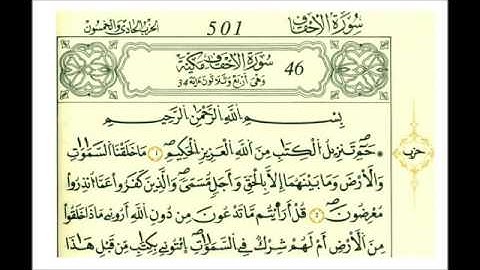 سورة الأحقاف 501 الحزب الحادي والخمسون
سورة الأحقاف مكية 46
وهي أربع وثلاثون آية 34
بِسْمِ اللَّهِ الرَّحْمَٰنِ الرَّحِيمِ
حَمِّ تَنزِيلُ الْكِتَٰبِ مِنَ اللَّهِ الْعَزِيزِ الْحَكِيمِ ١ مَا خَلَقْنَا السَّمَٰوَٰتِ
حزب
وَالْأَرْضَ وَمَا بَيْنَهُمَا إِلَّا بِالْحَقِّ وَأَجَلٍ مُّسَمًّى وَالَّذِينَ كَفَرُوا عَمَّا أُنذِرُوا
مُعْرِضُونَ ٢ قُلْ أَرَٰيْتُم مَّا تَدْعُونَ مِن دُونِ اللَّهِ أَرُونِي مَاذَا خَلَقُوا
مِنَ الْأَرْضِ أَمْ لَهُمْ شِرْكٌ فِي السَّمَٰوَٰتِ اِئْتُونِي بِكِتَٰبٍ مِّن قَبْلِ هَٰذَا